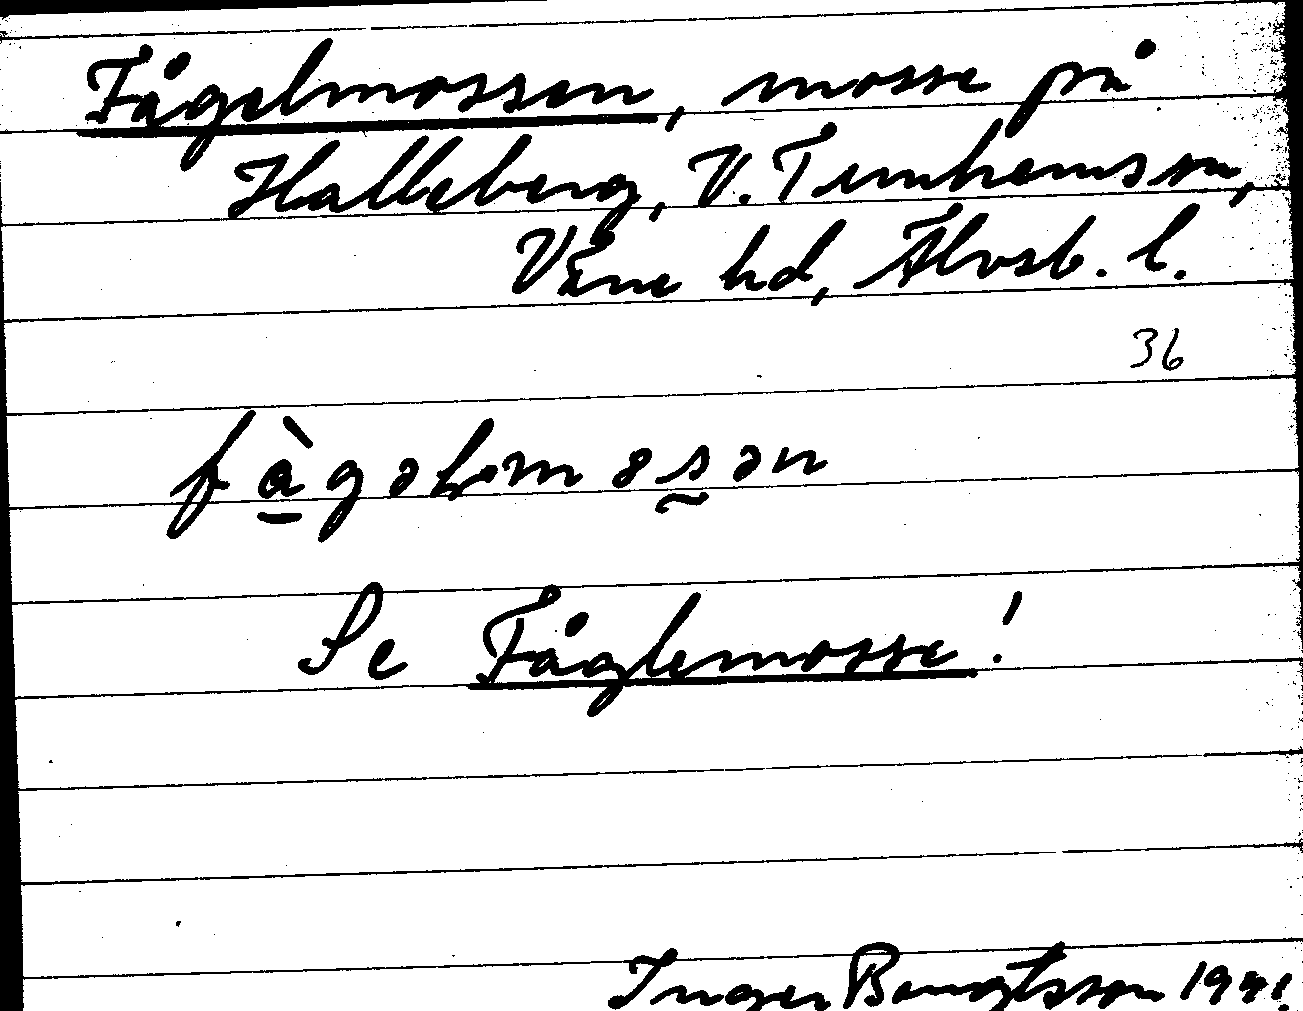 Fågelmossen, mosse på
Halleberg, V. Tunhems sn,
Väne hd, Älvsb. l.
36
fàgəlmɷsən
Se Fåglemosse!
Inger Bengtsson 1991.